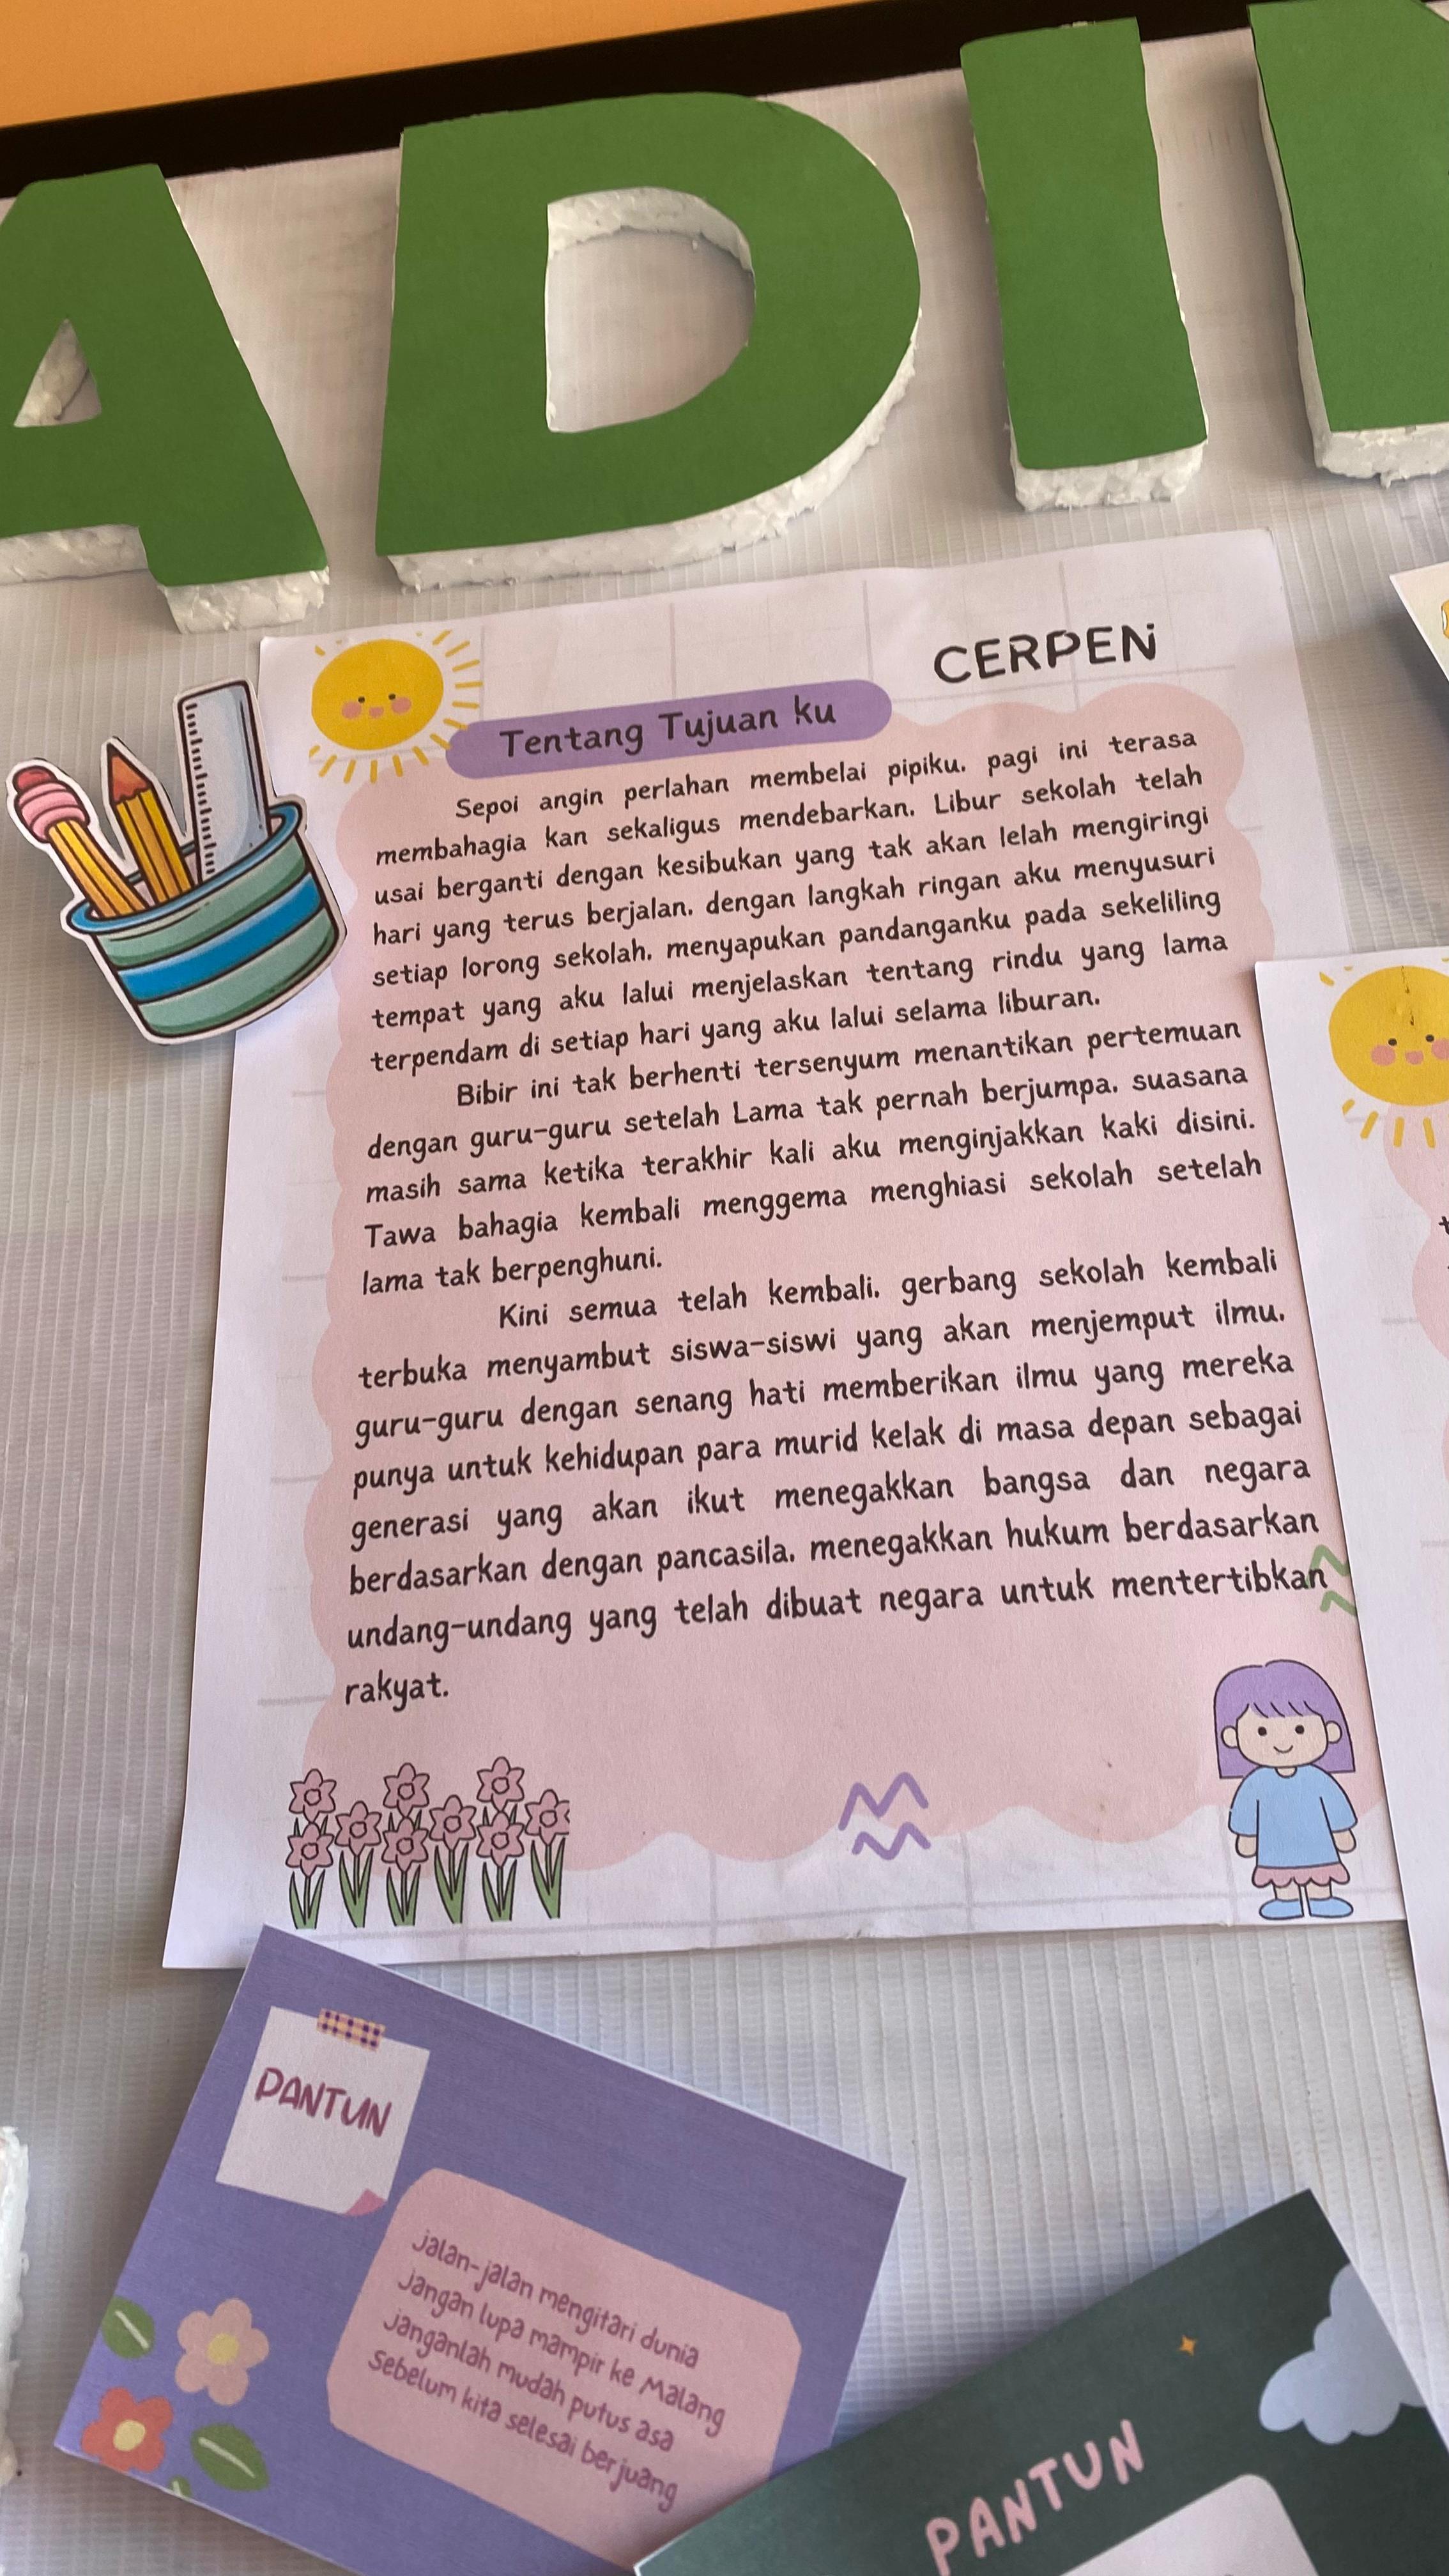 ADI
CERPEN
Tentang Tujuan ku
Sepoi angin perlahan membelai pipiku. pagi ini terasa
membahagia kan sekaligus mendebarkan. Libur sekolah telah
usai berganti dengan kesibukan yang tak akan lelah mengiringi
hari yang terus berjalan. dengan langkah ringan aku menyusuri
setiap lorong sekolah. menyapukan pandanganku pada sekeliling
tempat yang aku lalui menjelaskan tentang rindu yang lama
terpendam di setiap hari yang aku lalui selama liburan.
Bibir ini tak berhenti tersenyum menantikan pertemuan
dengan guru-guru setelah Lama tak pernah berjumpa. suasana
masih sama ketika terakhir kali aku menginjakkan kaki disini.
Tawa bahagia kembali menggema menghiasi sekolah setelah
lama tak berpenghuni.
Kini semua telah kembali. gerbang sekolah kembali
terbuka menyambut siswa-siswi yang akan menjemput ilmu.
guru-guru dengan senang hati memberikan ilmu yang mereka
punya untuk kehidupan para murid kelak di masa depan sebagai
generasi yang akan ikut menegakkan bangsa dan negara
berdasarkan dengan pancasila. menegakkan hukum berdasarkan
undang-undang yang telah dibuat negara untuk mentertibkan
rakyat.
PANTUN
jalan-jalan mengitari dunia
jangan lupa mampir ke Malang
janganlah mudah putus asa
sebelum kita selesai berjuang
PANTUN